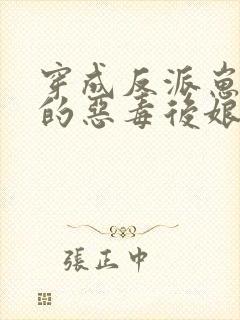 穿成反派崽
的惡毒後娘
張正中